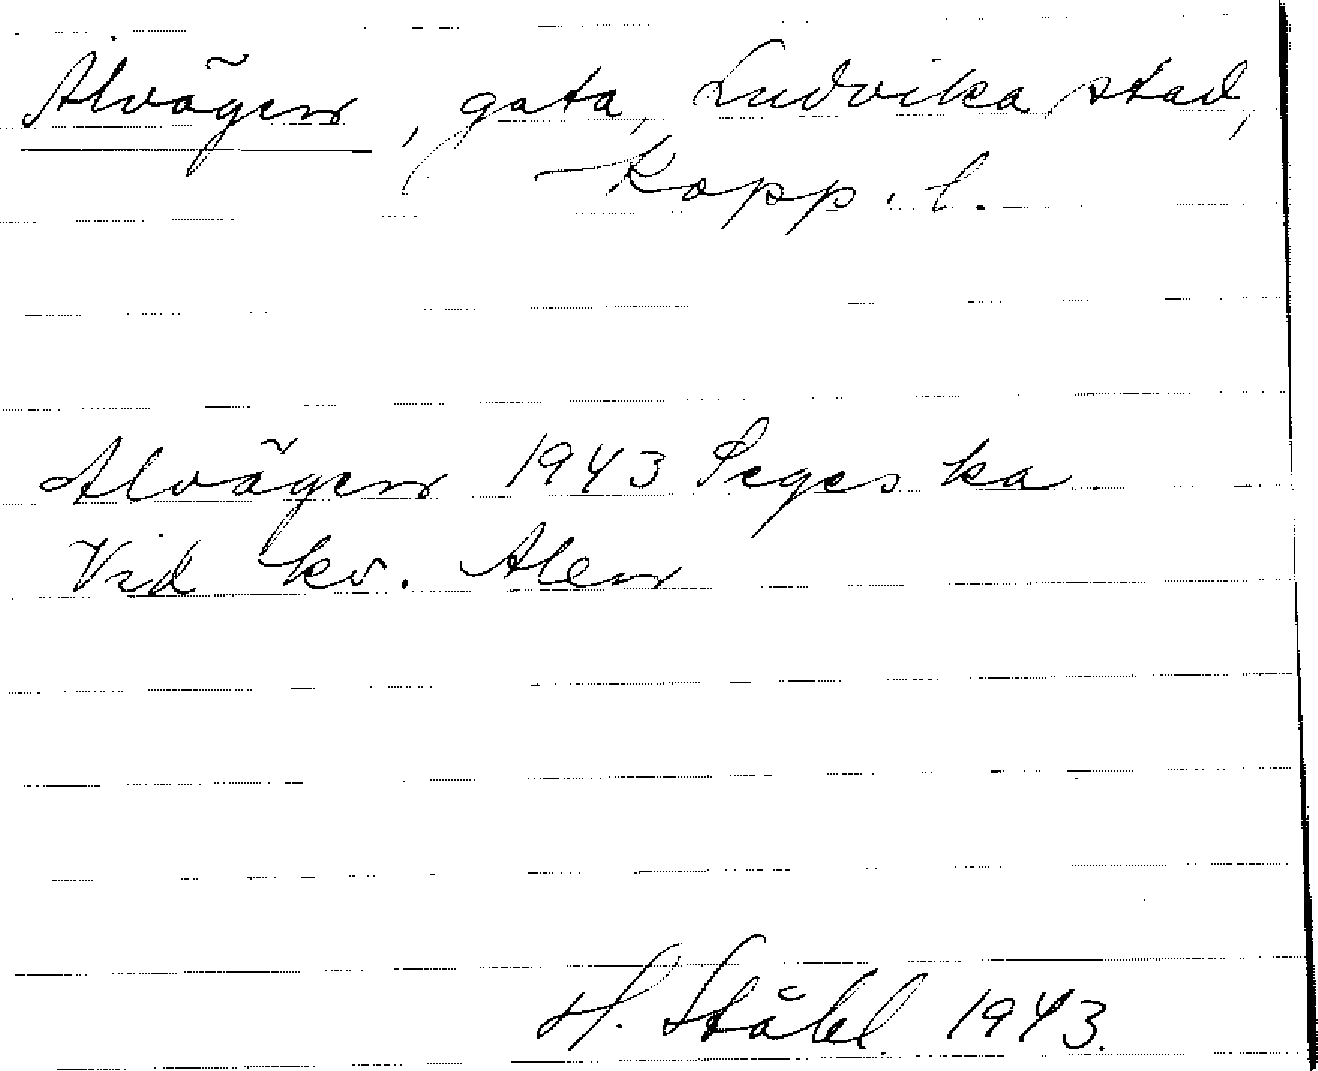 Alvägen, gata, Ludvika stad,
Kopp. l.
Alvägen 1943 Seges ka
Vid kv. Alen
H. Ståhl 1943.